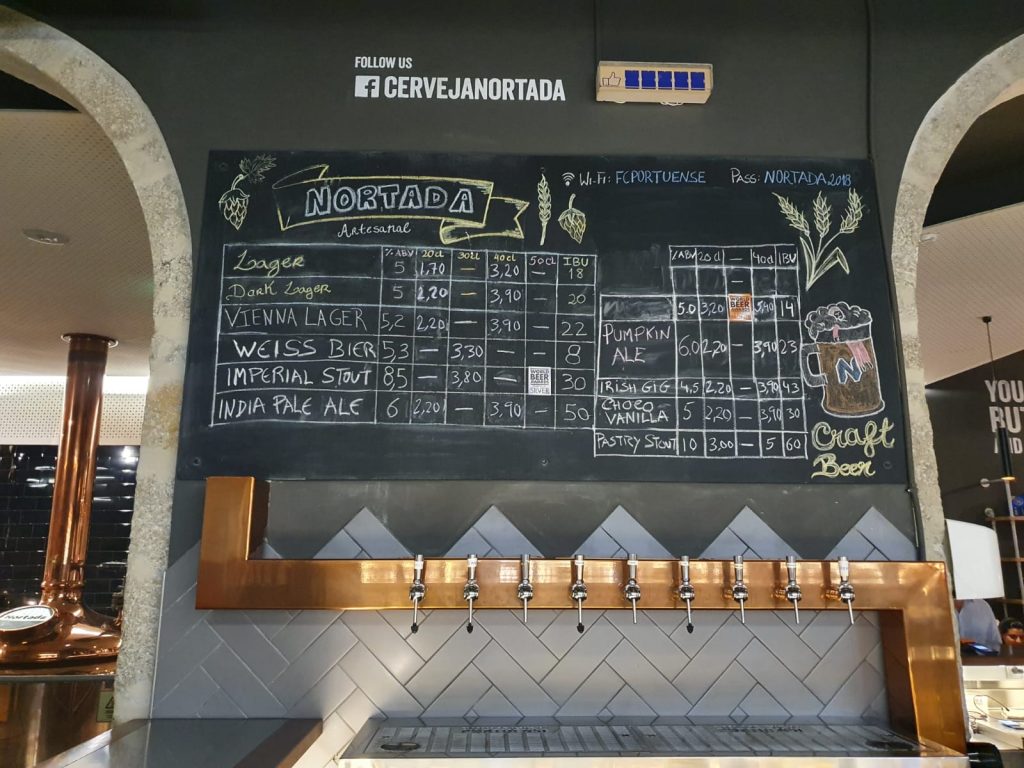 FOLLOW US
f CERVEJANORTADA
NORTADA
Artesanal
Wi-Fi: FCPORTUENSE Pass: NORTADA2018
% ABV 20cl 30cl 40cl 50cl IBU
Lager 5 1,70 — 3,20 — 18
Dark Lager 5 2,20 — 3,90 — 20
VIENNA LAGER 5,2 2,20 — 3,90 — 22
WEISS BIER 5,3 — 3,30 — — 8
IMPERIAL STOUT 8,5 — 3,80 — 30
WORLD BEER AWARDS SILVER
INDIA PALE ALE 6 2,20 — 3,90 — 50
%ABV 20cl — 40cl IBU
—
5.0 3,20 5,90 14
WORLD BEER AWARDS
PUMPKIN ALE 6.0 2,20 — 3,90 23
IRISH GIG 4,5 2,20 — 3,90 43
CHOCO VANILLA 5 2,20 — 3,90 30
PASTRY STOUT 10 3,00 — 5 60
N
Craft
Beer
Nortada
YOU
BUT